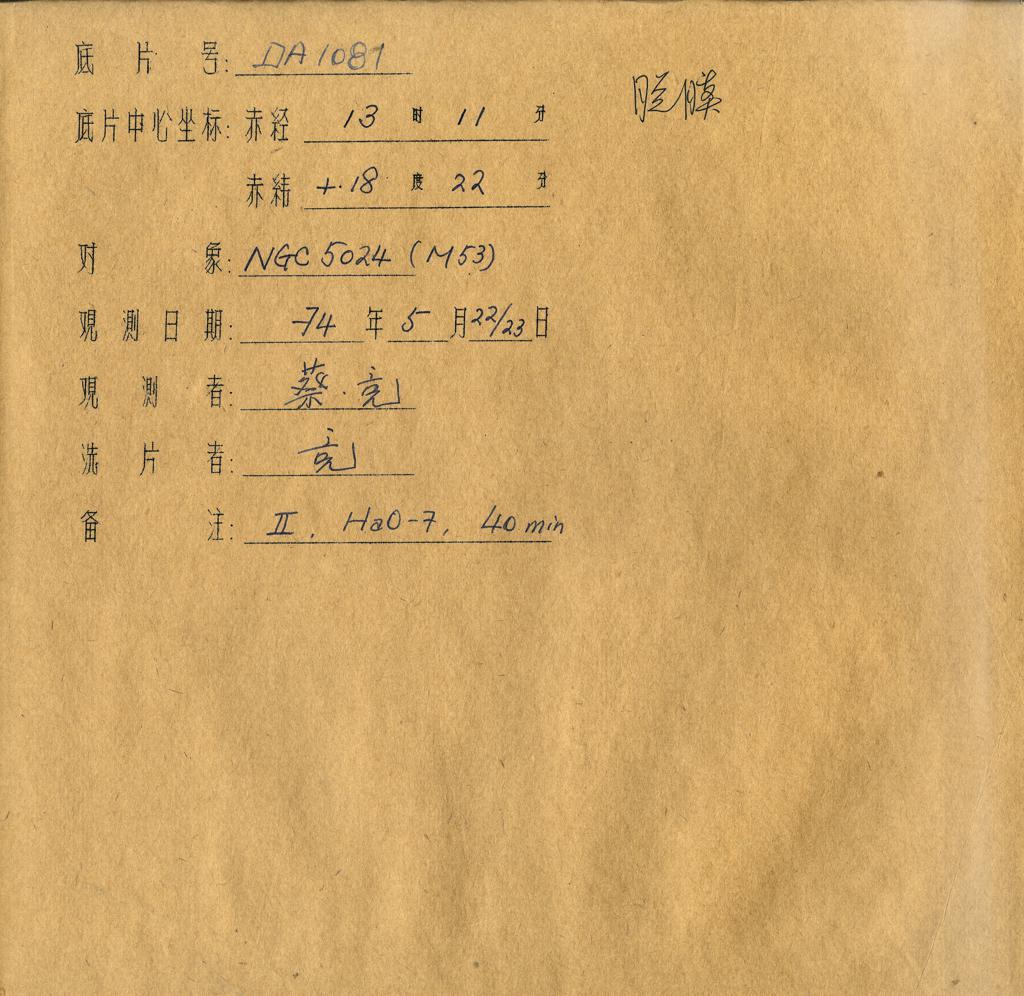 底片号: DA1081
脱膜
底片中心坐标: 赤经 13 时 11 分
赤纬 +18 度 22 分
对象: NGC 5024 (M53)
观测日期: 74 年 5 月 22/23 日
观测者: 蔡·亮
洗片者: 亮
备注: II, HaO-7, 40 min